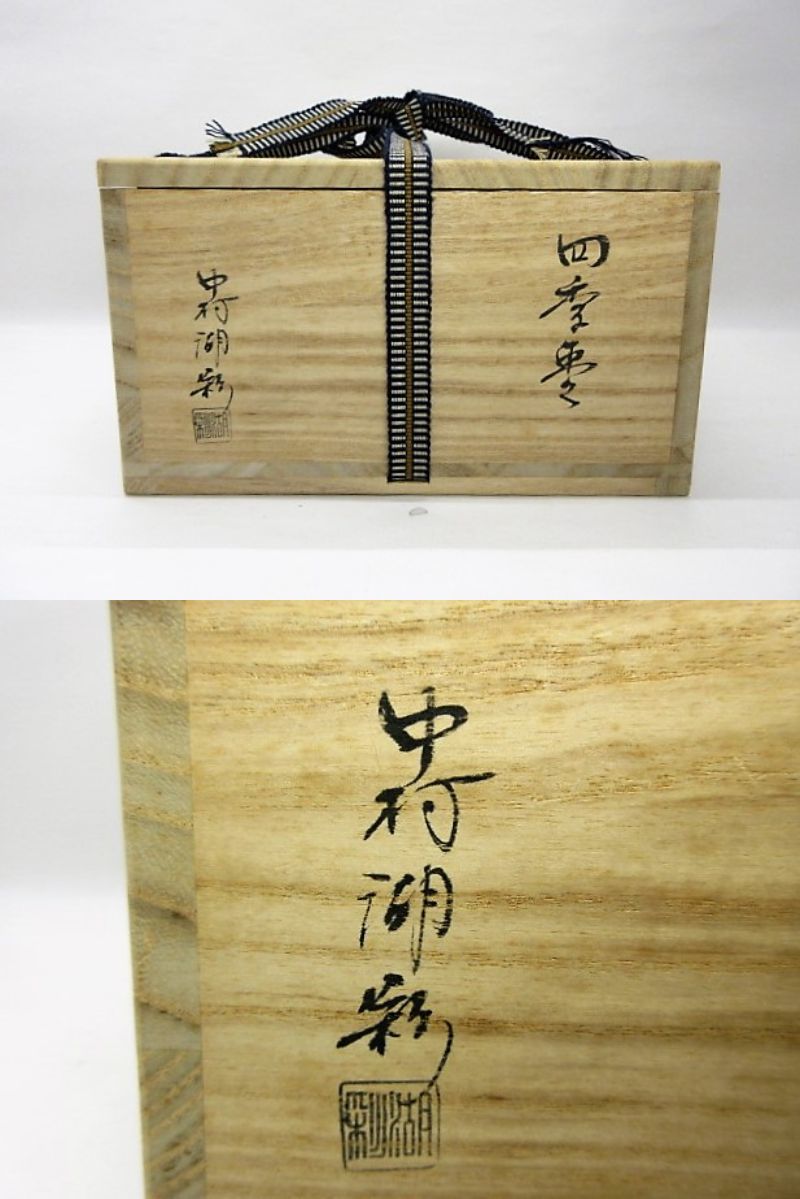 四季棗
中村湖彩
湖彩
中村湖彩
湖彩